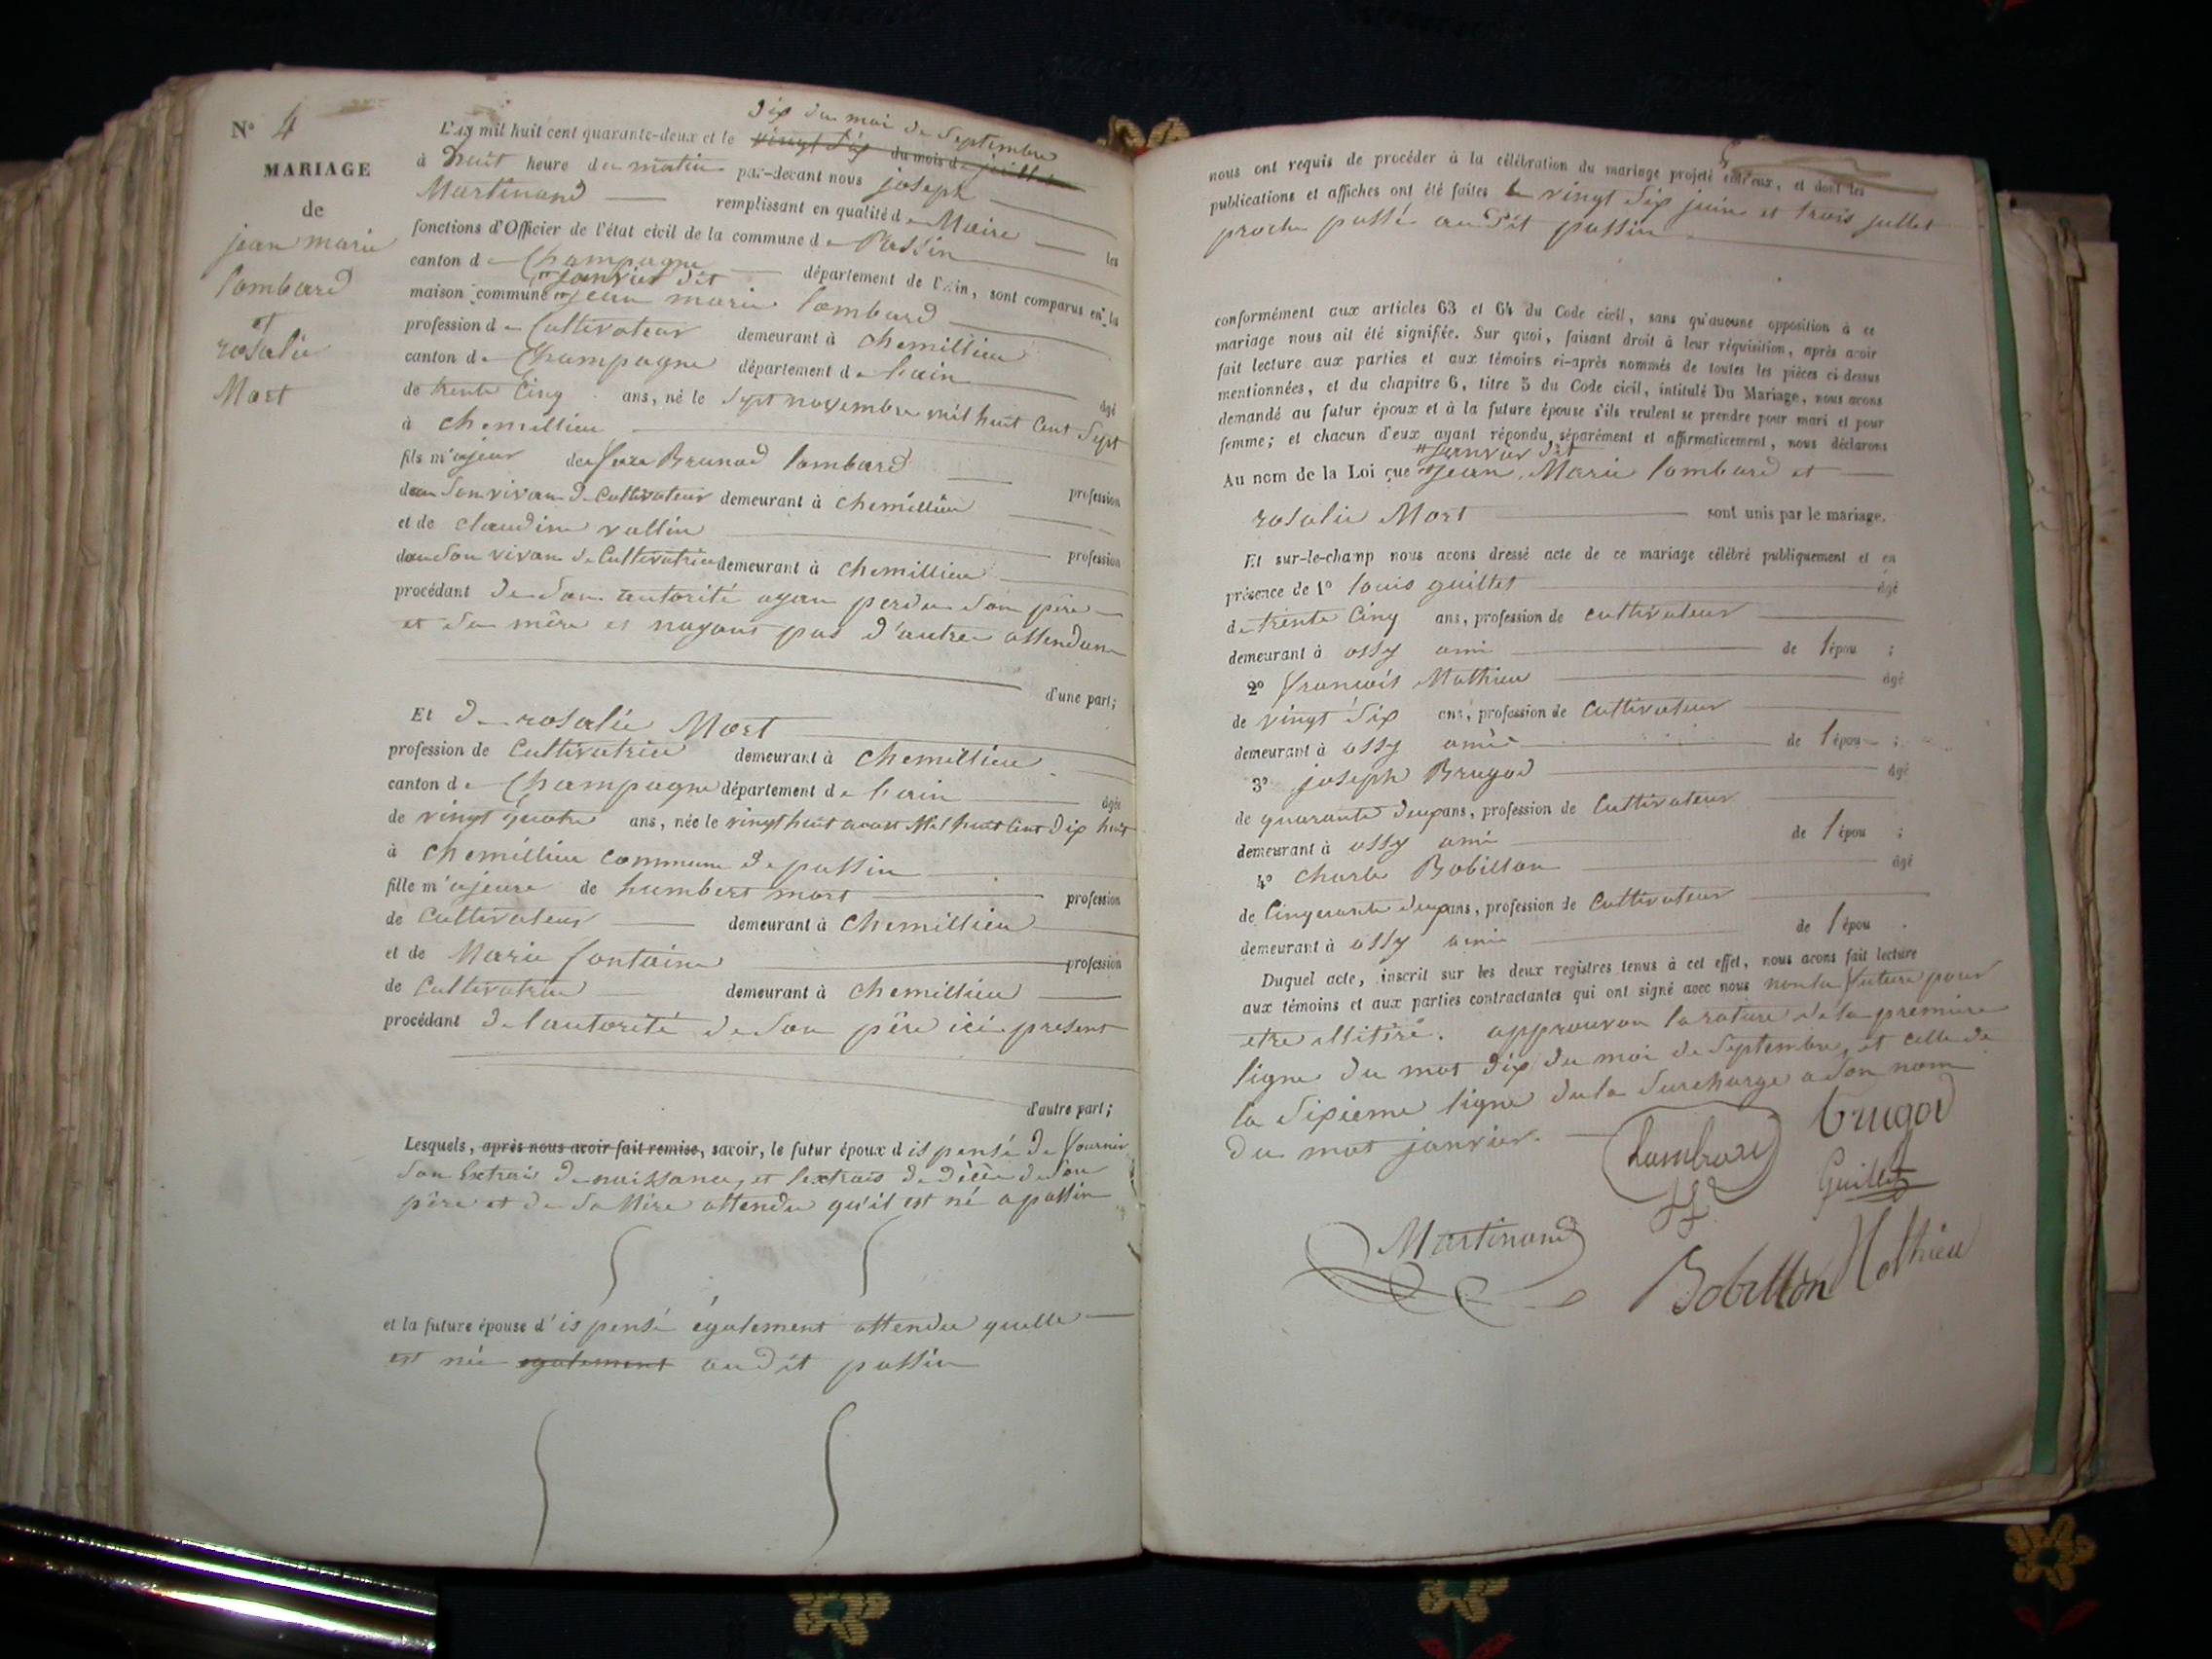 N° 4
MARIAGE
de
jean marie
lombard
et
rosalie
Mort
dix du moi de Septembre
L'an mil huit cent quarante-deux et le vingt six du mois de juillet
à huit heure du matin par-devant nous joseph
Martinand remplissant en qualité de Maire les
fonctions d'Officier de l'état civil de la commune de Passin
canton de Champagne département de l'Ain, sont comparus en la
janvier dit
maison commune jean marie lombard
profession de Cultivateur demeurant à chemillieu
canton de Champagne département de l'ain âgé
de trente Cinq ans, né le Sept novembre mil huit Cent Sept
à chemillieu
fils majeur de feux Brunod lombard profession
de son vivan de Cultivateur demeurant à chemillieu
et de claudine vallin profession
de son vivan de Cultivatrice demeurant à chemillieu
procédant de Son autorité ayan perdu Son père
et Sa mère et nayant pas d'autre attendan
d'une part;
Et de rosalie Mort
profession de Cultivatrice demeurant à chemillieu
canton de Champagne département de l'ain âgée
de vingt quatre ans, née le vingt huit Mil huit Cent Dix huit
à chemillieu commune de passin
fille majeure de humbert mort profession
de Cultivateur demeurant à chemillieu
et de Marie fontaine profession
de Cultivatrice demeurant à chemillieu
procédant de lautorité de Son père ici present
d'autre part;
Lesquels, après nous avoir fait remise, savoir, le futur époux dispensé de fournir
Son Extrai de naissance, et lextrais de décè de Son
père et de Sa Mère attendu qu'il est né a passin
et la future épouse d'ispensé également attendu quelle
est née egalement audit passin
nous ont requis de procéder à la célébration du mariage projeté entr'eux, et dont les
publications et affiches ont été faites le vingt Six juin et trois jullet
proche passé audit passin
conformément aux articles 63 et 64 du Code civil, sans qu'aucune opposition à ce
mariage nous ait été signifiée. Sur quoi, faisant droit à leur réquisition, après avoir
fait lecture aux parties et aux témoins ci-après nommés de toutes les pièces ci-dessus
mentionnées, et du chapitre 6, titre 5 du Code civil, intitulé Du Mariage, nous avons
demandé au futur époux et à la future épouse s'ils veulent se prendre pour mari et pour
femme; et chacun d'eux ayant répondu séparément et affirmativement, nous déclarons
janvier dit
Au nom de la Loi que jean Marie lombard et
rosalie Mort sont unis par le mariage.
Et sur-le-champ nous avons dressé acte de ce mariage célébré publiquement et en
présence de 1° louis guillet âgé
de trente Cinq ans, profession de cultivateur
demeurant à ossy ami de l'épou ;
2° francois Mathieu âgé
de vingt Six ans, profession de Cultivateur
demeurant à ossy amis de l'épou ;
3° joseph Brugod âgé
de quarante deux ans, profession de Cultivateur
demeurant à ossy ami de l'épou ;
4° Charle Bobillon âgé
de Cinquante deux ans, profession de Cultivateur
demeurant à ossy ami de l'épou
Duquel acte, inscrit sur les deux registres tenus à cet effet, nous avons fait lecture
aux témoins et aux parties contractantes qui ont signé avec nous non la future pour
etre illitéré. approuvon la rature de la premiere
ligne du mot dix du moi de Septembre, et celle de
la Sixieme ligne de la Surcharge a Son nom
du mot janvier.
Lombard brugod
Guillet
Martinand
Bobillon Mathieu